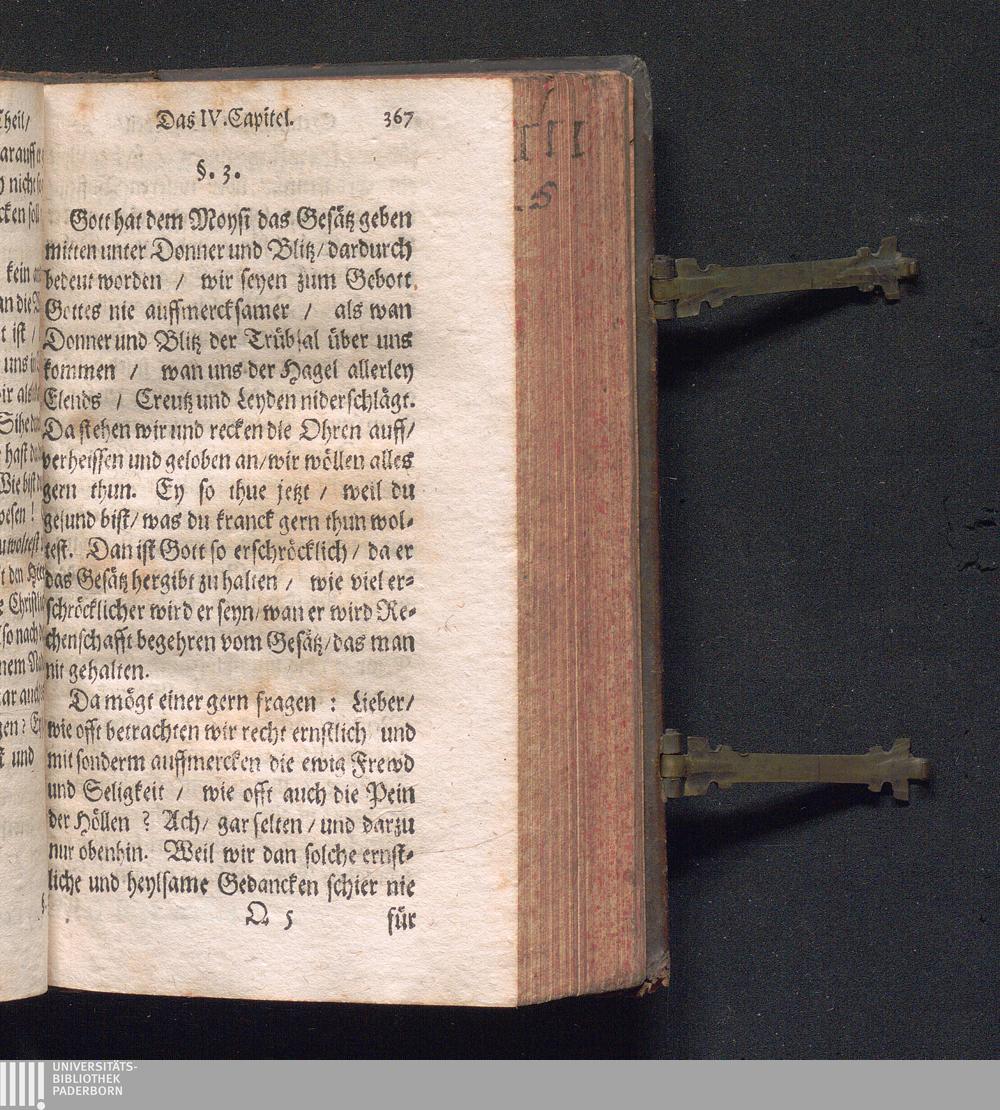 Das IV. Capitel. 367
§. 3.
Gott hat dem Moysi das Gesätz geben
mitten unter Donner und Blitz/ dardurch
bedeut worden / wir seyen zum Gebott
Gottes nie auffmercksamer / als wan
Donner und Blitz der Trübsal über uns
kommen / wan uns der Hagel allerley
Elends / Creutz und Leyden niderschlägt.
Da stehen wir und recken die Ohren auff/
verheissen und geloben an/ wir wöllen alles
gern thun. Ey so thue jetzt / weil du
gesund bist/ was du kranck gern thun wol-
test. Dan ist Gott so erschröcklich / da er
das Gesätz hergibt zu halten / wie viel er-
schröcklicher wird er seyn/ wan er wird Re-
chenschafft begehren vom Gesätz/ das man
nit gehalten.
Da mögt einer gern fragen : Lieber/
wie offt betrachten wir recht ernstlich und
mit sonderm auffmercken die ewig Frewd
und Seligkeit / wie offt auch die Pein
der Höllen ? Ach/ gar selten / und darzu
nur obenhin. Weil wir dan solche ernst-
liche und heylsame Gedancken schier nie
Q 5 für
Theil/
kein
an die
t ist /
uns
hast
Wie bist
wesen !
t den
so nach
gen?
und
UNIVERSITÄTS-
BIBLIOTHEK
PADERBORN